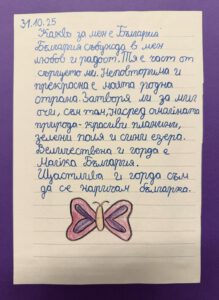 31.10.25
Каква за мен е България
България събужда в мен
любов и радост. Тя е част от
сърцето ми. Неповторима и
прекрасна е моята родна
страна. Затворя ли за миг
очи, сън там, насред омайната
природа - красиви планини,
зелени поля и сини езера.
Величествена и горда е
Майка България.
Щастлива и горда съм
да се наричам българка.